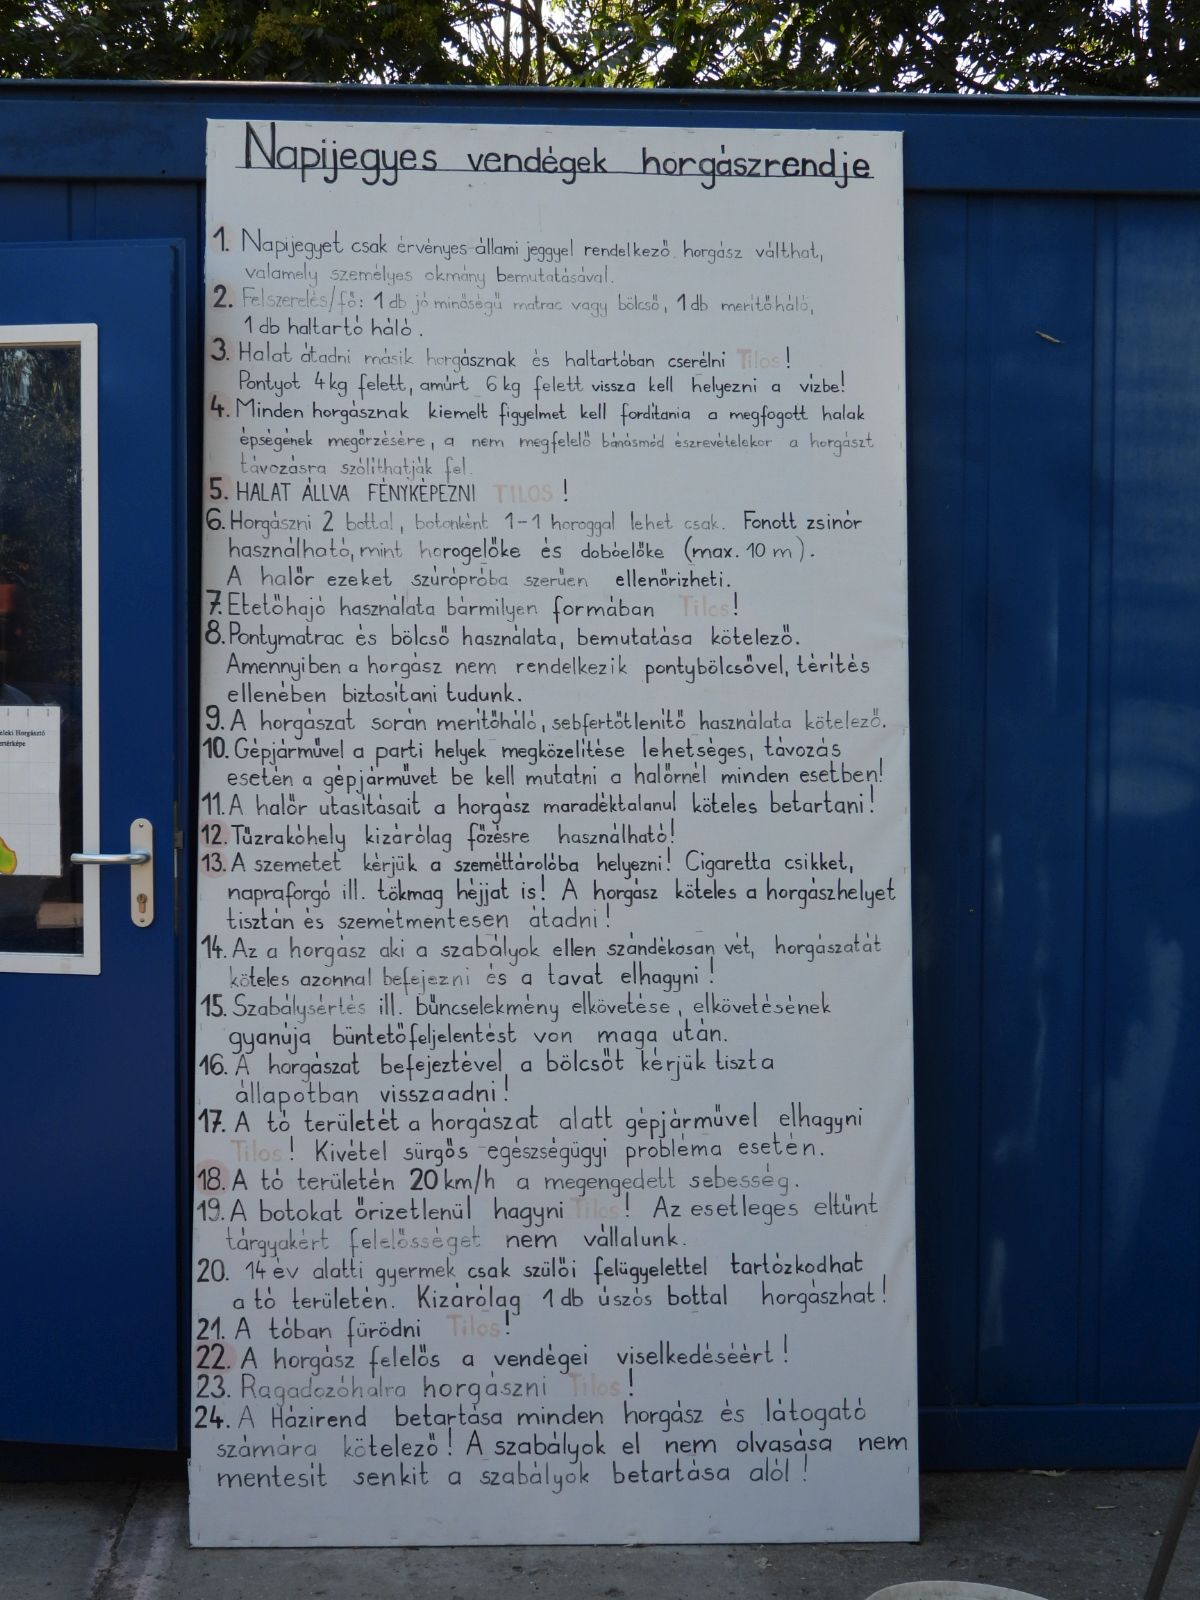 Napijegyes vendégek horgászrendje
1. Napijegyet csak érvényes állami jeggyel rendelkező horgász válthat,
valamely személyes okmány bemutatásával.
2. Felszerelés/fő: 1 db jó minőségű matrac vagy bölcső, 1 db merítőháló,
1 db haltartó háló.
3. Halat átadni másik horgásznak és haltartóban cserélni Tilos!
Pontyot 4 kg felett, amúrt 6 kg felett vissza kell helyezni a vízbe!
4. Minden horgásznak kiemelt figyelmet kell fordítania a megfogott halak
épségének megőrzésére, a nem megfelelő bánásmód észrevételekor a horgászt
távozásra szólíthatják fel.
5. HALAT ÁLLVA FÉNYKÉPEZNI TILOS!
6. Horgászni 2 bottal, botonként 1-1 horoggal lehet csak. Fonott zsinór
használható, mint horogelőke és dobóelőke (max. 10 m).
A halőr ezeket szúrópróba szerűen ellenőrizheti.
7. Etetőhajó használata bármilyen formában Tilos!
8. Pontymatrac és bölcső használata, bemutatása kötelező.
Amennyiben a horgász nem rendelkezik pontybölcsővel, térítés
ellenében biztosítani tudunk.
9. A horgászat során merítőháló, sebfertőtlenítő használata kötelező.
10. Gépjárművel a parti helyek megközelítése lehetséges, távozás
esetén a gépjárművet be kell mutatni a halőrnél minden esetben!
11. A halőr utasításait a horgász maradéktalanul köteles betartani!
12. Tűzrakóhely kizárólag főzésre használható!
13. A szemetet kérjük a szeméttárolóba helyezni! Cigaretta csikket,
napraforgó ill. tökmag héjjat is! A horgász köteles a horgászhelyet
tisztán és szemétmentesen átadni!
14. Az a horgász aki a szabályok ellen szándékosan vét, horgászatát
köteles azonnal befejezni és a tavat elhagyni!
15. Szabálysértés ill. bűncselekmény elkövetése, elkövetésének
gyanúja büntetőfeljelentést von maga után.
16. A horgászat befejeztével a bölcsőt kérjük tiszta
állapotban visszaadni!
17. A tó területét a horgászat alatt gépjárművel elhagyni
Tilos! Kivétel sürgős egészségügyi probléma esetén.
18. A tó területén 20 km/h a megengedett sebesség.
19. A botokat őrizetlenül hagyni Tilos! Az esetleges eltűnt
tárgyakért felelősséget nem vállalunk.
20. 14 év alatti gyermek csak szülői felügyelettel tartózkodhat
a tó területén. Kizárólag 1 db úszós bottal horgászhat!
21. A tóban fürödni Tilos!
22. A horgász felelős a vendégei viselkedéséért!
23. Ragadozóhalra horgászni Tilos!
24. A Házirend betartása minden horgász és látogató
számára kötelező! A szabályok el nem olvasása nem
mentesít senkit a szabályok betartása alól!